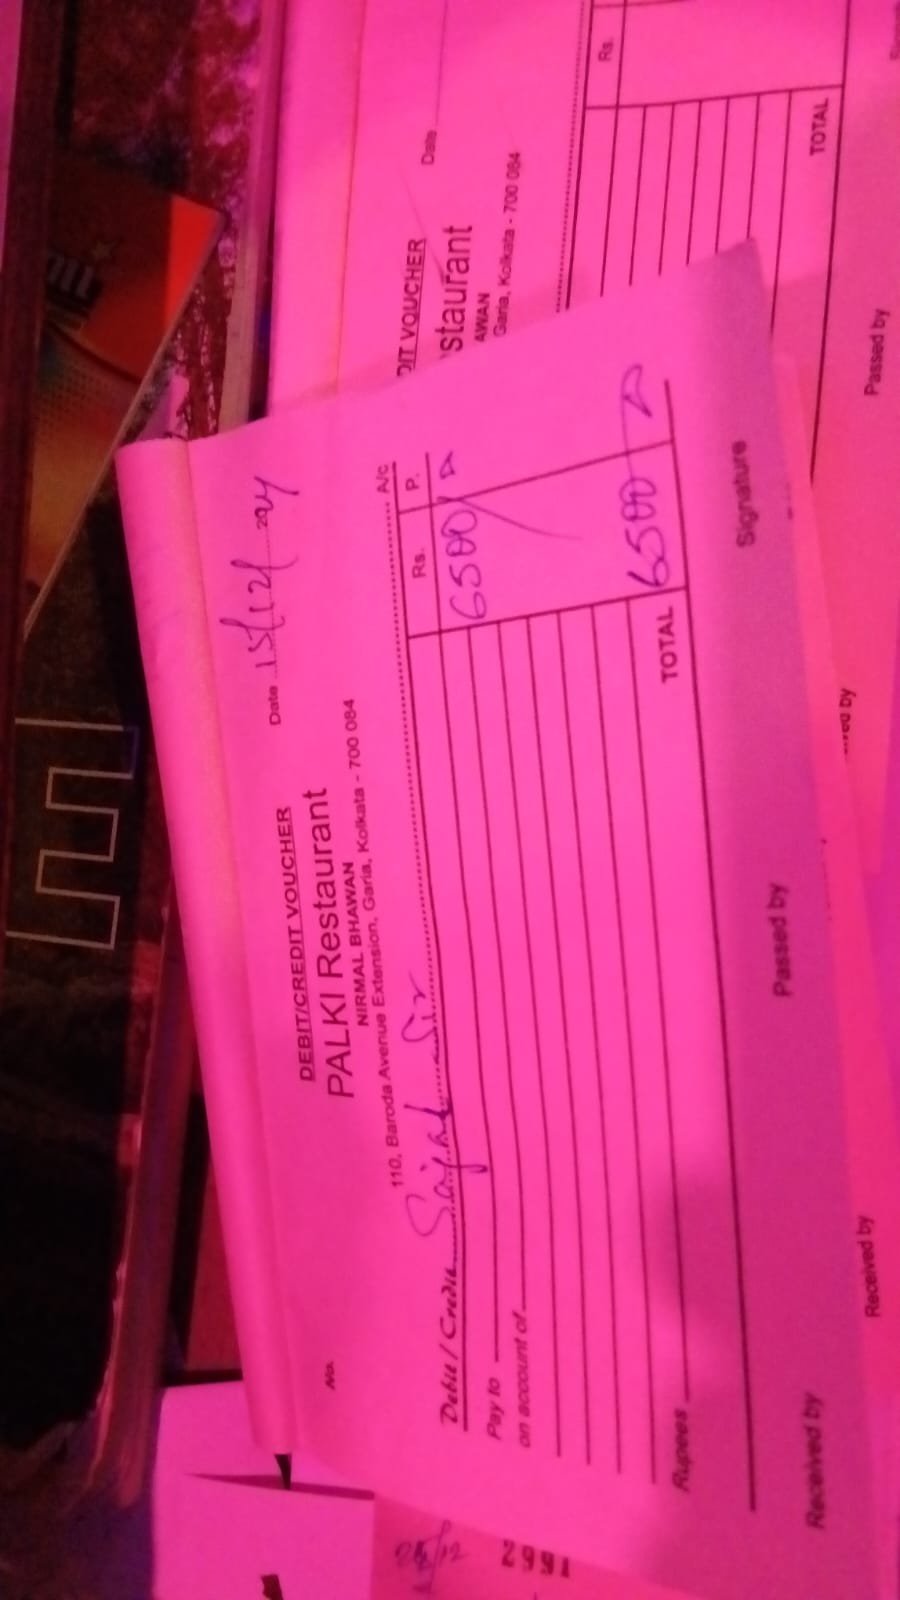 DEBIT/CREDIT VOUCHER
Date 15/12/2024
PALKI Restaurant
NIRMAL BHAWAN
110, Baroda Avenue Extension, Garia, Kolkata - 700 084
No.
Debit / Credit Sir A/c
Rs. P.
Pay to 6500/
on account of
TOTAL 6500
Rupees
Received by Passed by Signature
DIT VOUCHER
Date
staurant
AWAN
Garia, Kolkata - 700 084
Rs.
TOTAL
Received by Passed by
1662